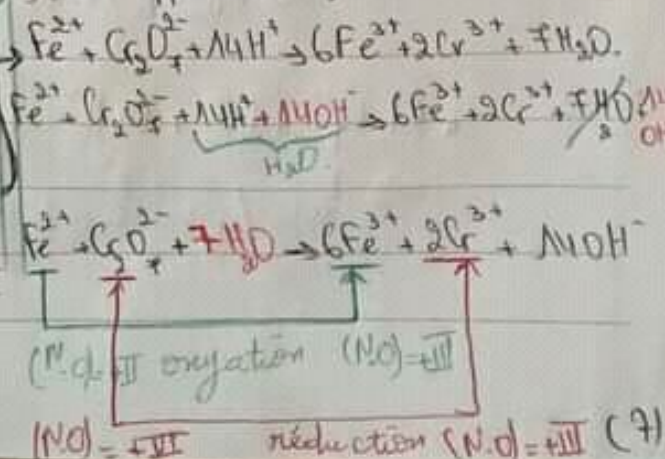 → Fe²⁺ + Cr₂O₇²⁻ + 14H⁺ → 6Fe³⁺ + 2Cr³⁺ + 7H₂O.
Fe²⁺ + Cr₂O₇²⁻ + 14H⁺ + 14OH⁻ → 6Fe³⁺ + 2Cr³⁺ + 7H₂O
H₂O.
Fe²⁺ + Cr₂O₇²⁻ + 7H₂O → 6Fe³⁺ + 2Cr³⁺ + 14OH⁻
(N.O)=+II oxydation (N.O)=+III
(N.O)=+VI réduction (N.O)=+III (7)